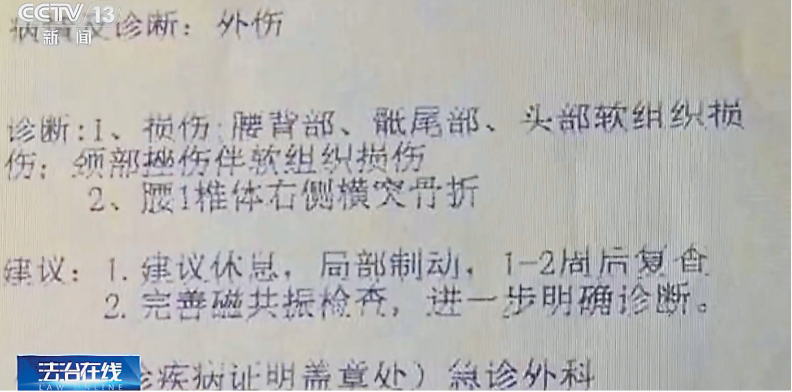 CCTV 13
新闻
病情及诊断：外伤
诊断:1、损伤:腰背部、骶尾部、头部软组织损
伤；颈部挫伤伴软组织损伤
2、腰1椎体右侧横突骨折
建议：1. 建议休息，局部制动，1-2周后复查
2. 完善磁共振检查，进一步明确诊断。
法治在线
LAW ONLINE
疾病证明盖章处）急诊外科